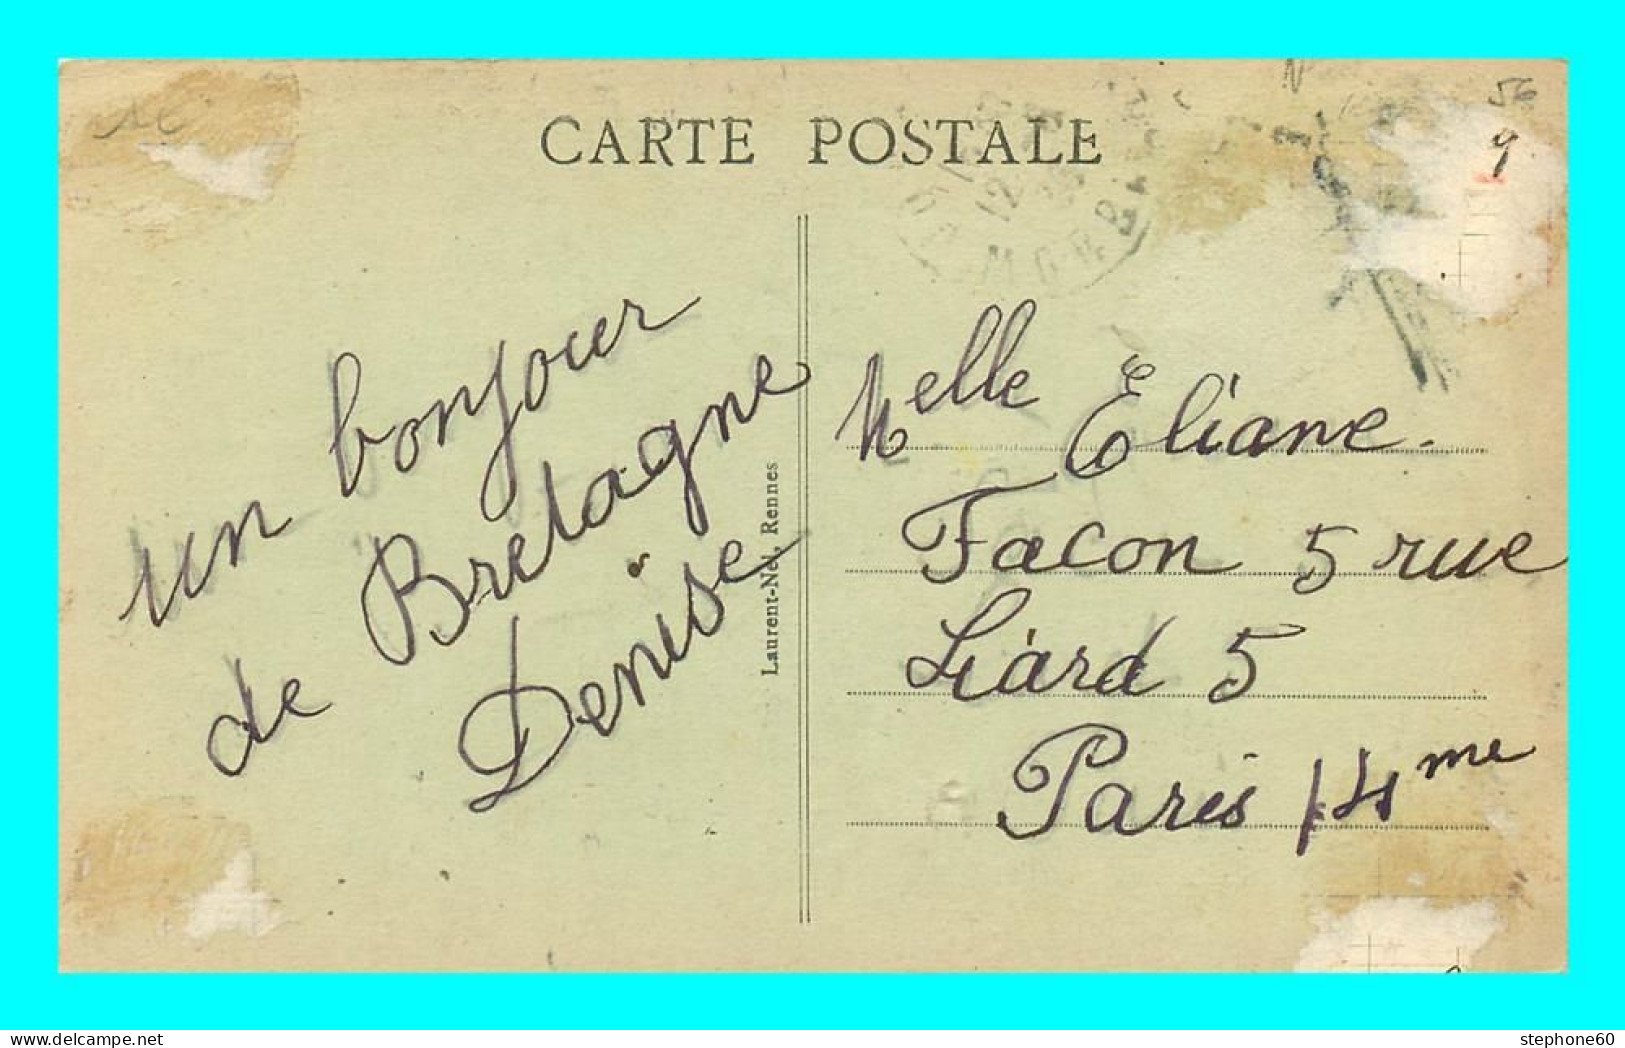 56
9
CARTE POSTALE
12
MORB
un bonjour
de Bretagne
Denise
Laurent-Nel, Rennes
Melle Eliane
Facon 5 rue
Liard 5
Paris 14me
delcampe.net
stephone60